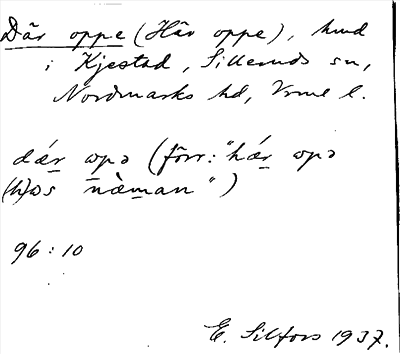 Där oppe (Här oppe), hmd
i Kjestad, Silleruds sn,
Nordmarks hd, Vrml l.
dǽr opə (förr: "hǽr opə
(h)os næ̀man")
96:10
E. Silfors 1937.